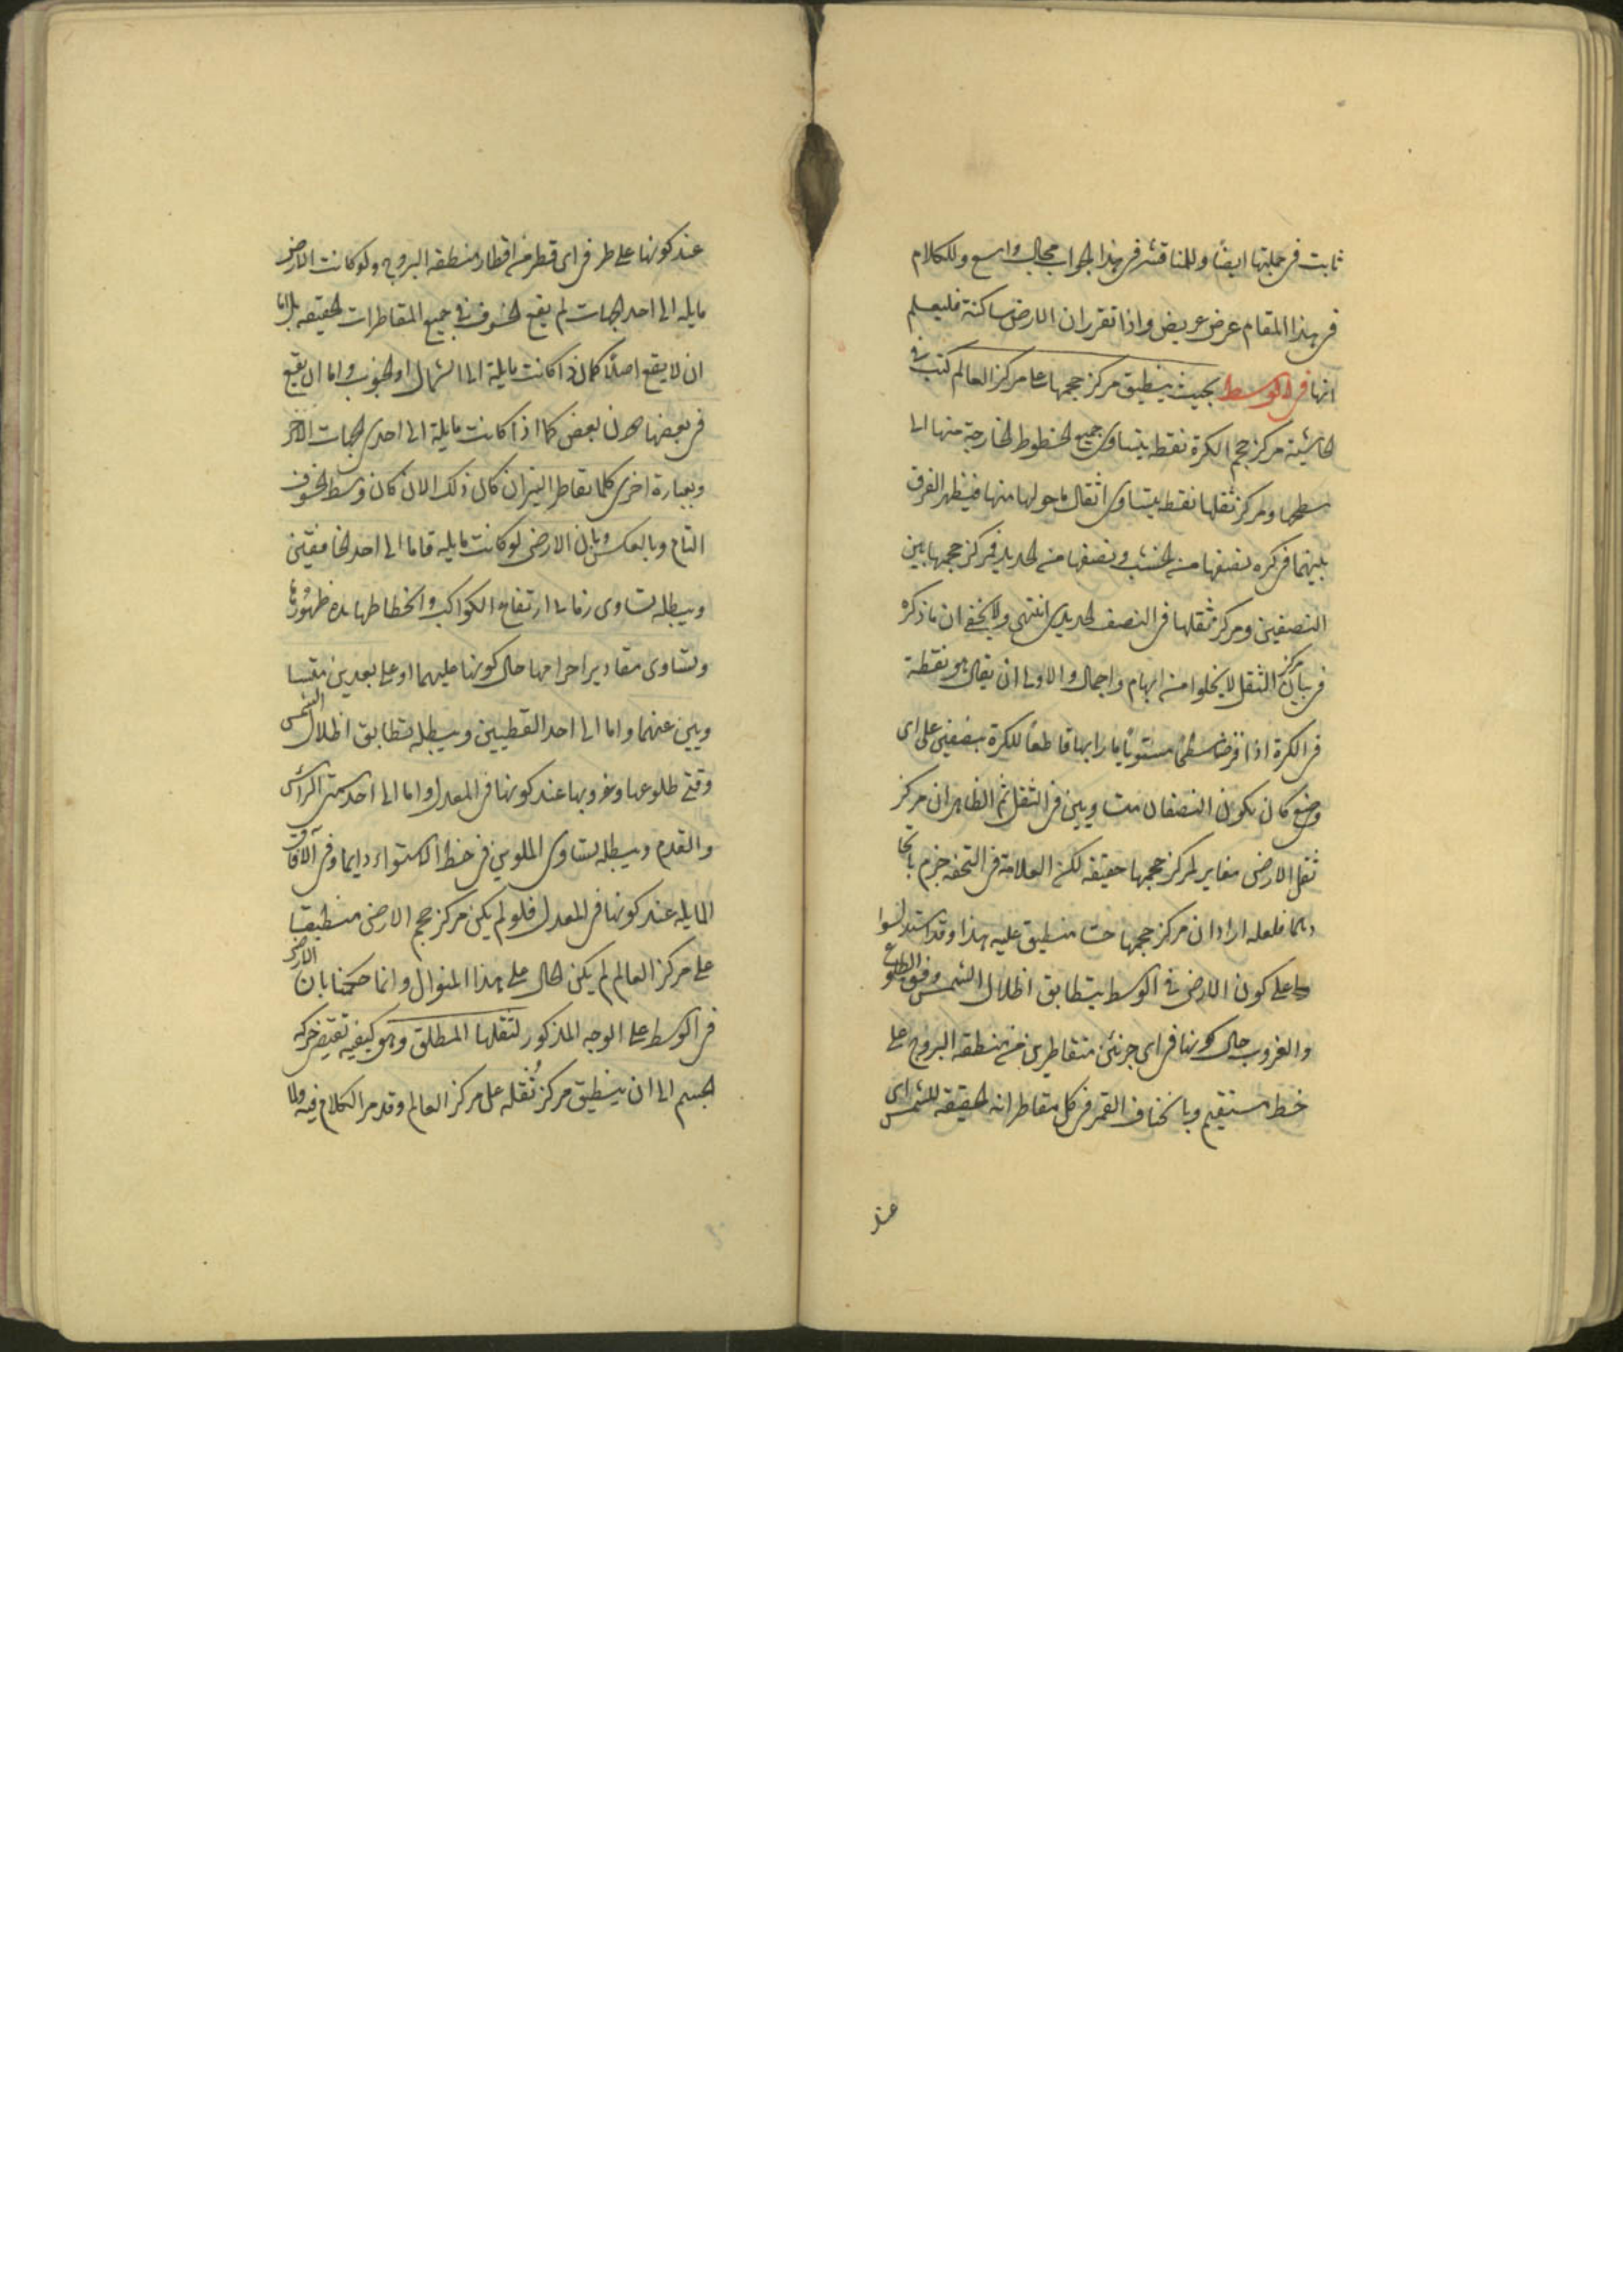 ثابت في جملتها ايضا وللمناقشة في هذا الجواب مجال واسع وللكلام
في هذا المقام عرض عريض واذا تقرر ان الارض ساكنة فليعلم
انها في الوسط بحيث ينطبق مركز حجمها على مركز العالم كتب في
الحاشية مركز حجم الكرة نقطة يتساوى جميع الخطوط الخارجة منها الى
سطحها ومركز ثقلها نقطة يتساوى اثقال ما حولها منها فيظهر الفرق
بينهما في كرة نصفها من الخشب ونصفها من الحديد فمركز حجمها بين
النصفين ومركز ثقلها في النصف الحديدى انتهى ولا يخفى ان ما ذكره
في بيان مركز الثقل لا يخلوا من ابهام واجمال والاولى ان يقال هو نقطة
في الكرة اذا فرض سطحا مستويا مارا بها قاطعا للكرة بنصفين على اى
وضع كان يكون النصفان متساويين في الثقل ثم الظاهر ان مركز
ثقل الارض مغاير لمركز حجمها حقيقة لكن العلامة في التحفة جزم باتحا
دهما فلعله اراد ان مركز حجمها حسا منطبق عليه هذا وقد استدلوا
على كون الارض في الوسط بتطابق اظلال الشمس وقتى الطلوع
والغروب حال كونها في اى جزئين متقاطرين من منطقة البروج على
خط مستقيم وبانخساف القمر في كل مقاطراته الحقيقة للشمس اى
عند
عند كونها على طرفى اى قطر من اقطار منطقة البروج ولو كانت الارض
مايلة الى احد الجهات لم يقع الخسوف في جميع المقاطرات الحقيقه بل اما
ان لا يقع اصلا كما اذا كانت مايلة الى الشمال او الجنوب واما ان يقع
في بعضها دون بعض كما اذا كانت مايلة الى احدى الجهات الاخر
وبعبارة اخرى كلما تقاطر النيران كان ذلك الان كان وسط الخسوف
التام وبالعكس وبان الارض لو كانت مايله فاما الى احد الخافقين
ويبطله تساوى زمانى ارتفاع الكواكب وانحطاطها مدة ظهورها
وتساوى مقادير اجرامها حال كونها عليهما او على بعدين متسا
ويين عنهما واما الى احد القطبين ويبطله تطابق اظلال الشمس
وقتى طلوعها وغروبها عند كونها في المعدل واما الى احد سمتى الراس
والقدم ويبطله تساوى الملوين في خط الاستواء دايما وفي الافاق
المايله عند كونها في المعدل فلو لم يكن مركز حجم الارض منطبقا
على مركز العالم لم يكن الحال على هذا المنوال وانما حكمنا بان الارض
في الوسط على الوجه المذكور لثقلها المطلق وهو كيفيه تقتضى حركة
الجسم الى ان ينطبق مركز ثقله على مركز العالم وقد مر الكلام فيه ولما